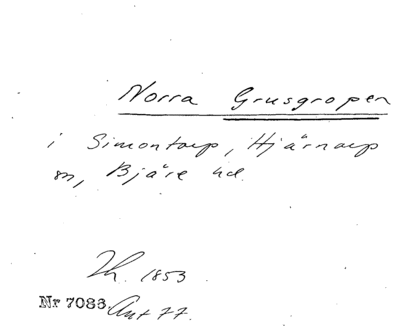 Norra Grusgropen
i Simontorp, Hjärnarp
sn, Bjäre hd.
Th. 1853
Nr 7083. Ant 77.